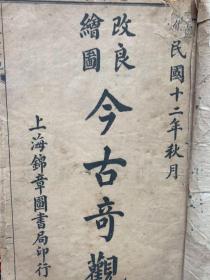 民國十二年秋月
改良
繪圖
今古奇觀
上海錦章圖書局印行